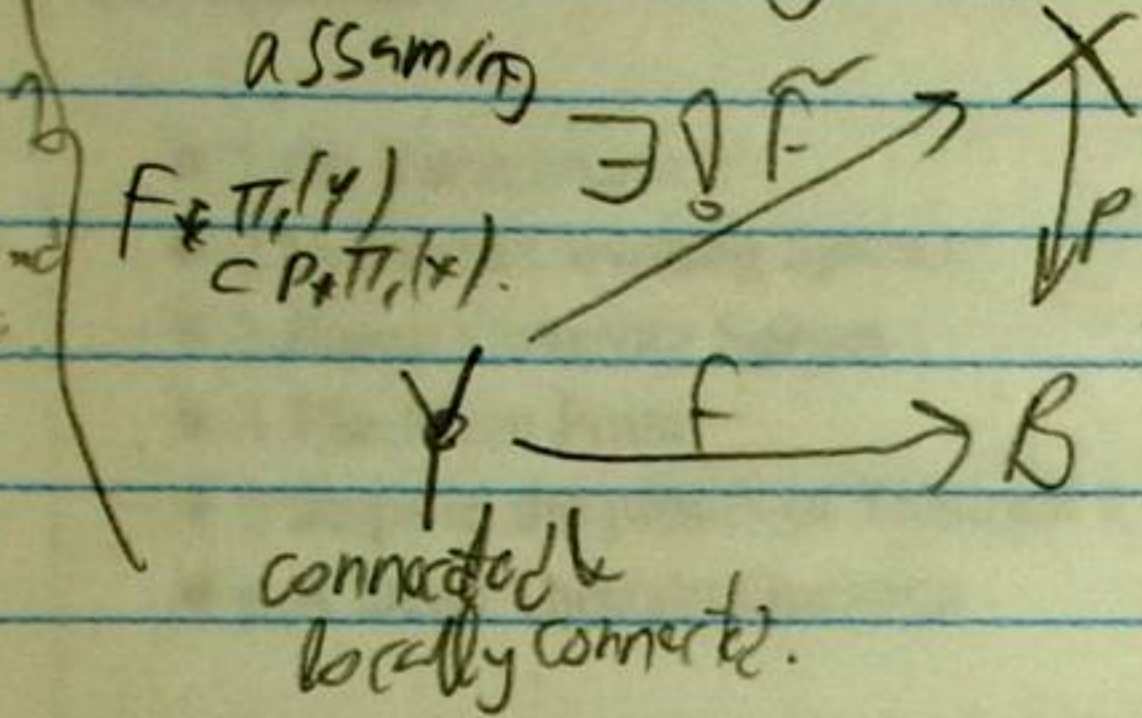 assuming
∃! f̃
X
F* π₁(Y)
⊂ P* π₁(X).
P
Y
f
B
connected &
locally connected.